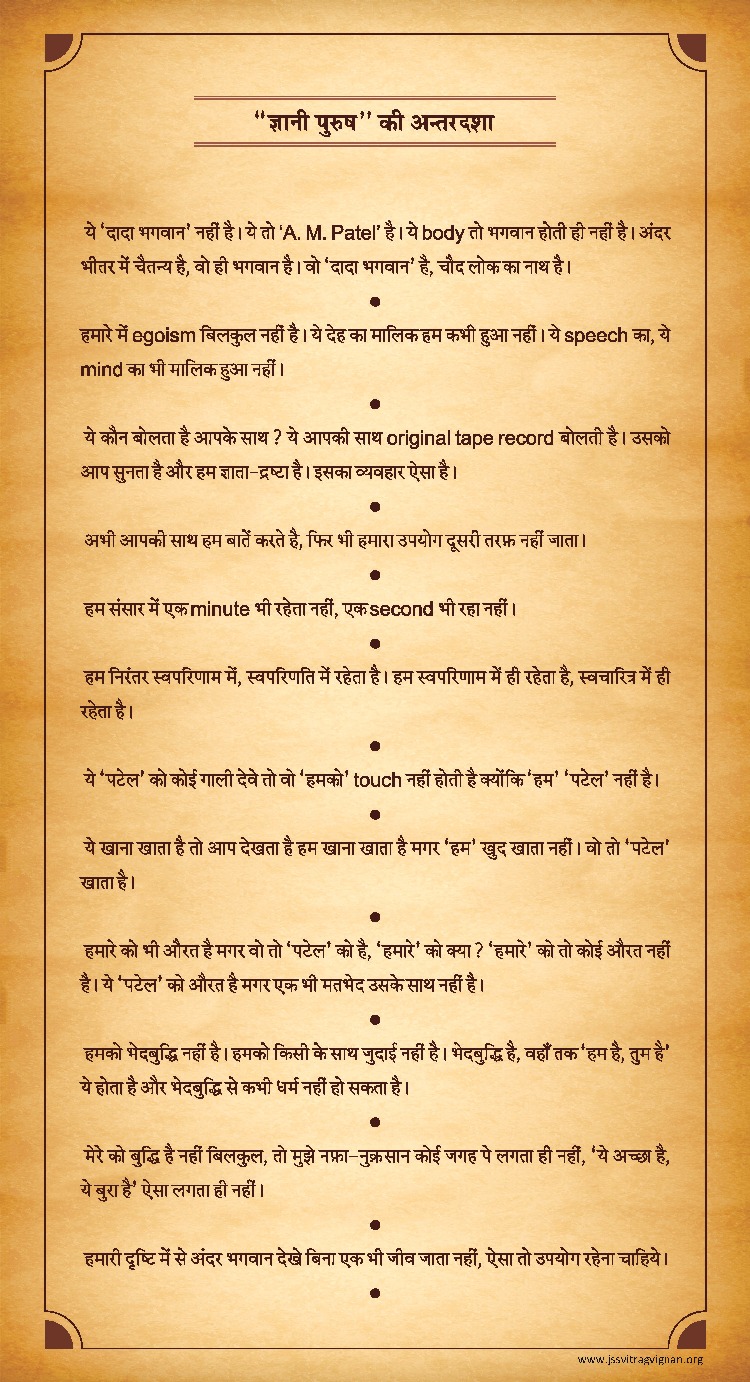 “ज्ञानी पुरुष’’ की अन्तरदशा
ये ‘दादा भगवान’ नहीं है। ये तो ‘A. M. Patel’ है। ये body तो भगवान होती ही नहीं है। अंदर
भीतर में चैतन्य है, वो ही भगवान है। वो ‘दादा भगवान’ है, चौद लोक का नाथ है।
●
हमारे में egoism बिलकुल नहीं है। ये देह का मालिक हम कभी हुआ नहीं। ये speech का, ये
mind का भी मालिक हुआ नहीं।
●
ये कौन बोलता है आपके साथ ? ये आपकी साथ original tape record बोलती है। उसको
आप सुनता है और हम ज्ञाता-द्रष्टा है। इसका व्यवहार ऐसा है।
●
अभी आपकी साथ हम बातें करते है, फिर भी हमारा उपयोग दूसरी तरफ़ नहीं जाता।
●
हम संसार में एक minute भी रहेता नहीं, एक second भी रहा नहीं।
●
हम निरंतर स्वपरिणाम में, स्वपरिणति में रहेता है। हम स्वपरिणाम में ही रहेता है, स्वचारित्र में ही
रहेता है।
●
ये ‘पटेल’ को कोई गाली देवे तो वो ‘हमको’ touch नहीं होती है क्योंकि ‘हम’ ‘पटेल’ नहीं है।
●
ये खाना खाता है तो आप देखता है हम खाना खाता है मगर ‘हम’ खुद खाता नहीं। वो तो ‘पटेल’
खाता है।
●
हमारे को भी औरत है मगर वो तो ‘पटेल’ को है, ‘हमारे’ को क्या ? ‘हमारे’ को तो कोई औरत नहीं
है। ये ‘पटेल’ को औरत है मगर एक भी मतभेद उसके साथ नहीं है।
●
हमको भेदबुद्धि नहीं है। हमको किसी के साथ जुदाई नहीं है। भेदबुद्धि है, वहाँ तक ‘हम है, तुम है’
ये होता है और भेदबुद्धि से कभी धर्म नहीं हो सकता है।
●
मेरे को बुद्धि है नहीं बिलकुल, तो मुझे नफ़ा-नुक़सान कोई जगह पे लगता ही नहीं, ‘ये अच्छा है,
ये बुरा है’ ऐसा लगता ही नहीं।
●
हमारी दृष्टि में से अंदर भगवान देखे बिना एक भी जीव जाता नहीं, ऐसा तो उपयोग रहेना चाहिये।
●
www.jssvitragvignan.org